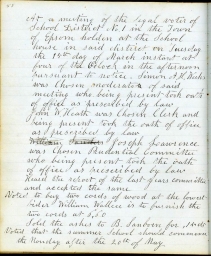 At a meeting of the legal voters of
School District No. 1 in the Town
of Epsom holden at the School
house in said district on Tuesday
the 14th day of March instant at
four of the clock in the afternoon
pursuant to notice Simon A. H.
was chosen moderator of said
meeting who being present took oath
of office as prescribed by law
John D. Heath was chosen Clerk and
being present took the oath of office
as prescribed by law
Joseph Lawrence
was chosen Prudential Committee
who being present took the oath
of office as prescribed by law
Heard the report of the last years committee
and accepted the same
Voted to buy two cords of wood at the lowest
bidder William Wallace is to furnish the
two cords at 3,50
Sold the ashes to B. Sanborn for
Voted that the summer school should commence
the Monday after the 20th of May.